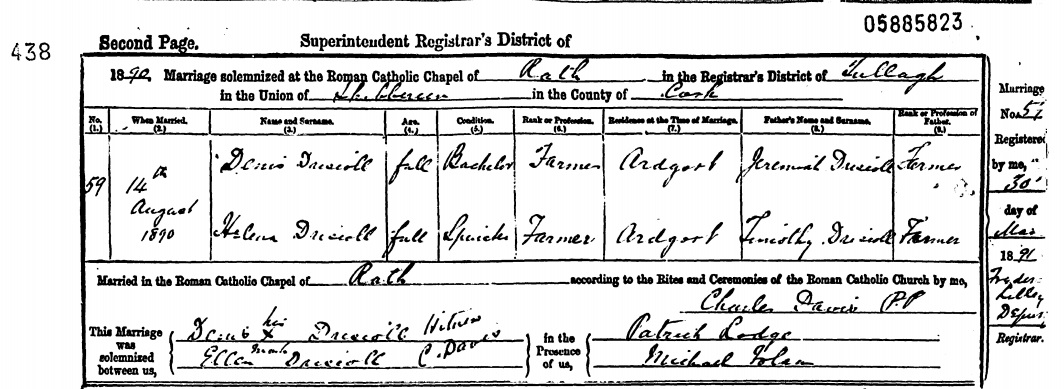 05885823
438
Second Page. Superintendent Registrar's District of
1890. Marriage solemnized at the Roman Catholic Chapel of Rath in the Registrar's District of Tullagh
in the Union of Skibbereen in the County of Cork
No. When Married. Name and Surname. Age. Condition. Rank or Profession. Residence at the Time of Marriage. Father's Name and Surname. Rank or Profession of Father.
(1.) (2.) (3.) (4.) (5.) (6.) (7.) (8.) (9.)
59 14th August 1890
Denis Driscoll full Bachelor Farmer Ardgort Jeremiah Driscoll Farmer
Helena Driscoll full Spinster Farmer Ardgort Timothy Driscoll Farmer
Married in the Roman Catholic Chapel of Rath according to the Rites and Ceremonies of the Roman Catholic Church by me,
Charles Davis P.P
This Marriage was solemnized between us,
Denis his x mark Driscoll Witness
Ellen Driscoll C. Davis
in the Presence of us,
Patrick Lodge
Michael
Marriage
No.
Registered
by me,
30
day of
1891
Registrar.